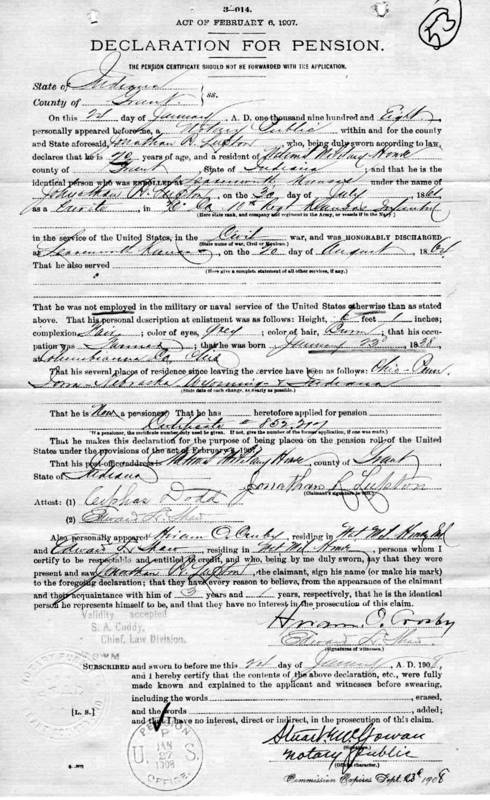 3-014.
ACT OF FEBRUARY 6, 1907.
DECLARATION FOR PENSION.
THE PENSION CERTIFICATE SHOULD NOT BE FORWARDED WITH THE APPLICATION.
State of Indiana
County of Grant } ss:
On this day of January, A. D. one thousand nine hundred and Eight
personally appeared before me, a Notary Public within and for the county
and State aforesaid, Jonathan R. Lupton, who, being duly sworn according to law,
declares that he is 70 years of age, and a resident of National Military Home
county of Grant, State of Indiana; and that he is the
identical person who was ENROLLED at Leavenworth Kansas under the name of
Jonathan R. Lupton, on the day of July, 1861
as a in Kansas Infantry
(Here state rank, and company and regiment in the Army, or vessels if in the Navy.)
in the service of the United States, in the Civil war, and was HONORABLY DISCHARGED
(State name of war, Civil or Mexican.)
at Leavenworth Kansas, on the 20 day of August, 1864
That he also served
(Here give a complete statement of all other services, if any.)
That he was not employed in the military or naval service of the United States otherwise than as stated
above. That his personal description at enlistment was as follows: Height, 6 feet 1 inches;
complexion Fair; color of eyes, Grey; color of hair, ; that his occu-
pation was Farmer; that he was born January 23d, 1838,
at Columbianna Co, Ohio
That his several places of residence since leaving the service have been as follows: Ohio - Penn
Iowa - Nebraska Wyoming & Indiana
(State date of each change, as nearly as possible.)
That he is a pensioner. That he has heretofore applied for pension
Certificate # 852,
(If a pensioner, the certificate number only need be given. If not, give the number of the former application, if one was made.)
That he makes this declaration for the purpose of being placed on the pension roll of the United
States under the provisions of the act of February 6, 1907.
That his post-office address is National Military Home, county of Grant,
State of Indiana
Jonathan R Lupton
(Claimant's signature in full.)
Attest: (1) Cephas Dodd
(2) Edward L. Shaw
Also personally appeared Hiram O. Crosby, residing in Nat. Mil. Home, Ind
and Edward L. Shaw, residing in Nat Mil Home, persons whom I
certify to be respectable and entitled to credit, and who, being by me duly sworn, say that they were
present and saw Jonathan R. Lupton, the claimant, sign his name (or make his mark)
to the foregoing declaration; that they have every reason to believe, from the appearance of the claimant
and their acquaintance with him of 3 years and years, respectively, that he is the identical
person he represents himself to be, and that they have no interest in the prosecution of this claim.
Validity accepted
S. A. Cuddy,
Chief, Law Division.
Hiram O. Crosby
Edward L. Shaw
(Signatures of witnesses.)
SUBSCRIBED and sworn to before me this day of January, A. D. 1908,
and I hereby certify that the contents of the above declaration, etc., were fully
made known and explained to the applicant and witnesses before swearing,
including the words , erased,
and the words , added;
[L. S.] and that I have no interest, direct or indirect, in the prosecution of this claim.
PENSION OFFICE
U S
JAN
27
1908
Stuart McGowan
(Signature.)
Notary Public
(Official character.)
Commission Expires Sept. 1908